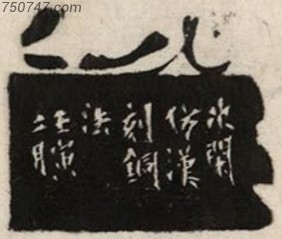 750747.com
次閑
仿漢
刻銅
法
壬寅
二月